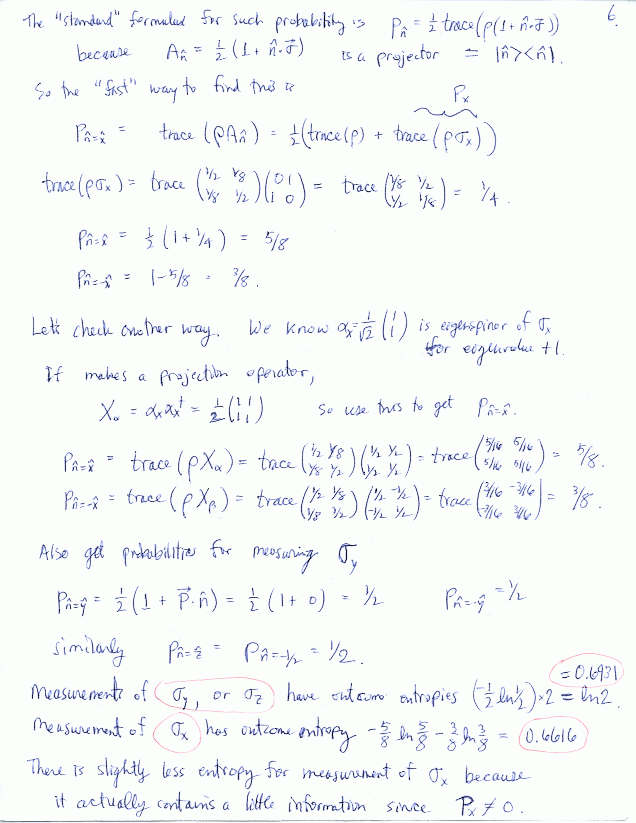 6.
The "standard" formula for such probability is P_n̂ = ½ trace(ρ(1 + n̂·σ⃗))
because A_n̂ = ½ (1 + n̂·σ⃗) is a projector = |n̂><n̂|.
So the "fast" way to find this is
P_x
P_n̂=x̂ = trace (ρA_n̂) = ½(trace(ρ) + trace(ρσ_x))
trace(ρσ_x) = trace (1/2 1/8; 1/8 1/2)(0 1; 1 0) = trace (1/8 1/2; 1/2 1/8) = 1/4.
P_n̂=x̂ = ½ (1 + 1/4) = 5/8
P_n̂=-x̂ = 1 - 5/8 = 3/8.
Let's check another way. We know α_x = 1/√2 (1; 1) is eigenspinor of σ_x
for eigenvalue +1.
If makes a projection operator,
X_α = α_x α_x† = ½ (1 1; 1 1) so use this to get P_n̂=x̂.
P_n̂=x̂ = trace (ρX_α) = trace (1/2 1/8; 1/8 1/2)(1/2 1/2; 1/2 1/2) = trace (5/16 5/16; 5/16 5/16) = 5/8.
P_n̂=-x̂ = trace (ρX_β) = trace (1/2 1/8; 1/8 1/2)(1/2 -1/2; -1/2 1/2) = trace (3/16 -3/16; -3/16 3/16) = 3/8.
Also get probabilities for measuring σ_y
P_n̂=ŷ = ½ (1 + P⃗·n̂) = ½ (1 + 0) = 1/2 P_n̂=-ŷ = 1/2
similarly P_n̂=ẑ = P_n̂=-½ = 1/2.
= 0.6931
Measurements of σ_y, or σ_z have outcome entropies (-½ ln ½)×2 = ln 2.
Measurement of σ_x has outcome entropy -5/8 ln 5/8 - 3/8 ln 3/8 = 0.6616
There is slightly less entropy for measurement of σ_x because
it actually contains a little information since P_x ≠ 0.